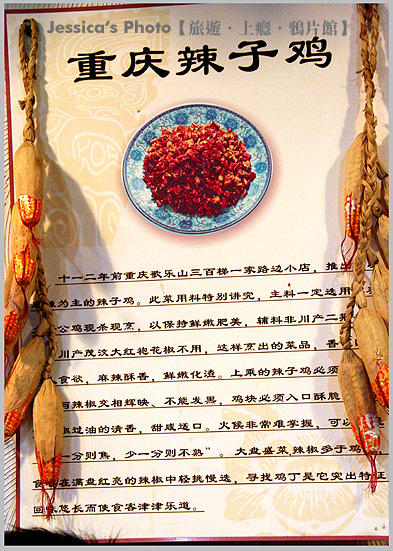 Jessica's Photo【旅遊・上癮・鴉片館】
重庆辣子鸡
十一二年前重庆歌乐山三百梯一家路边小店，推出
辣为主的辣子鸡。此菜用料特别讲究，主料一定选用
公鸡现杀现烹，以保持鲜嫩肥美，辅料非川产二
川产茂汶大红袍花椒不用，这样烹出的菜品，香
食欲，麻辣酥香，鲜嫩化渣。上乘的辣子鸡必须
与辣椒交相辉映、不能发黑，鸡块必须入口酥脆
椒过油的清香，甜咸适口。火候非常难掌握，可
一分则焦，少一分则不熟”。大盘盛菜，辣椒多于鸡
食客在满盘红亮的辣椒中轻挑慢选，寻找鸡丁是它突出特征
回味悠长而使食客津津乐道。